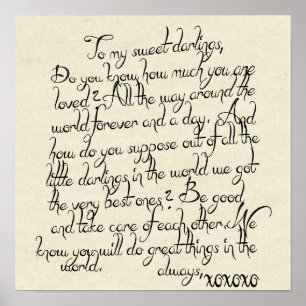 To my sweet darlings,
Do you know how much you are
loved? All the way around the
world forever and a day. And
how do you suppose out of all the
little darlings in the world we got
the very best ones? Be good
and take care of each other. We
know you will do great things in the
world. always, xoxoxo